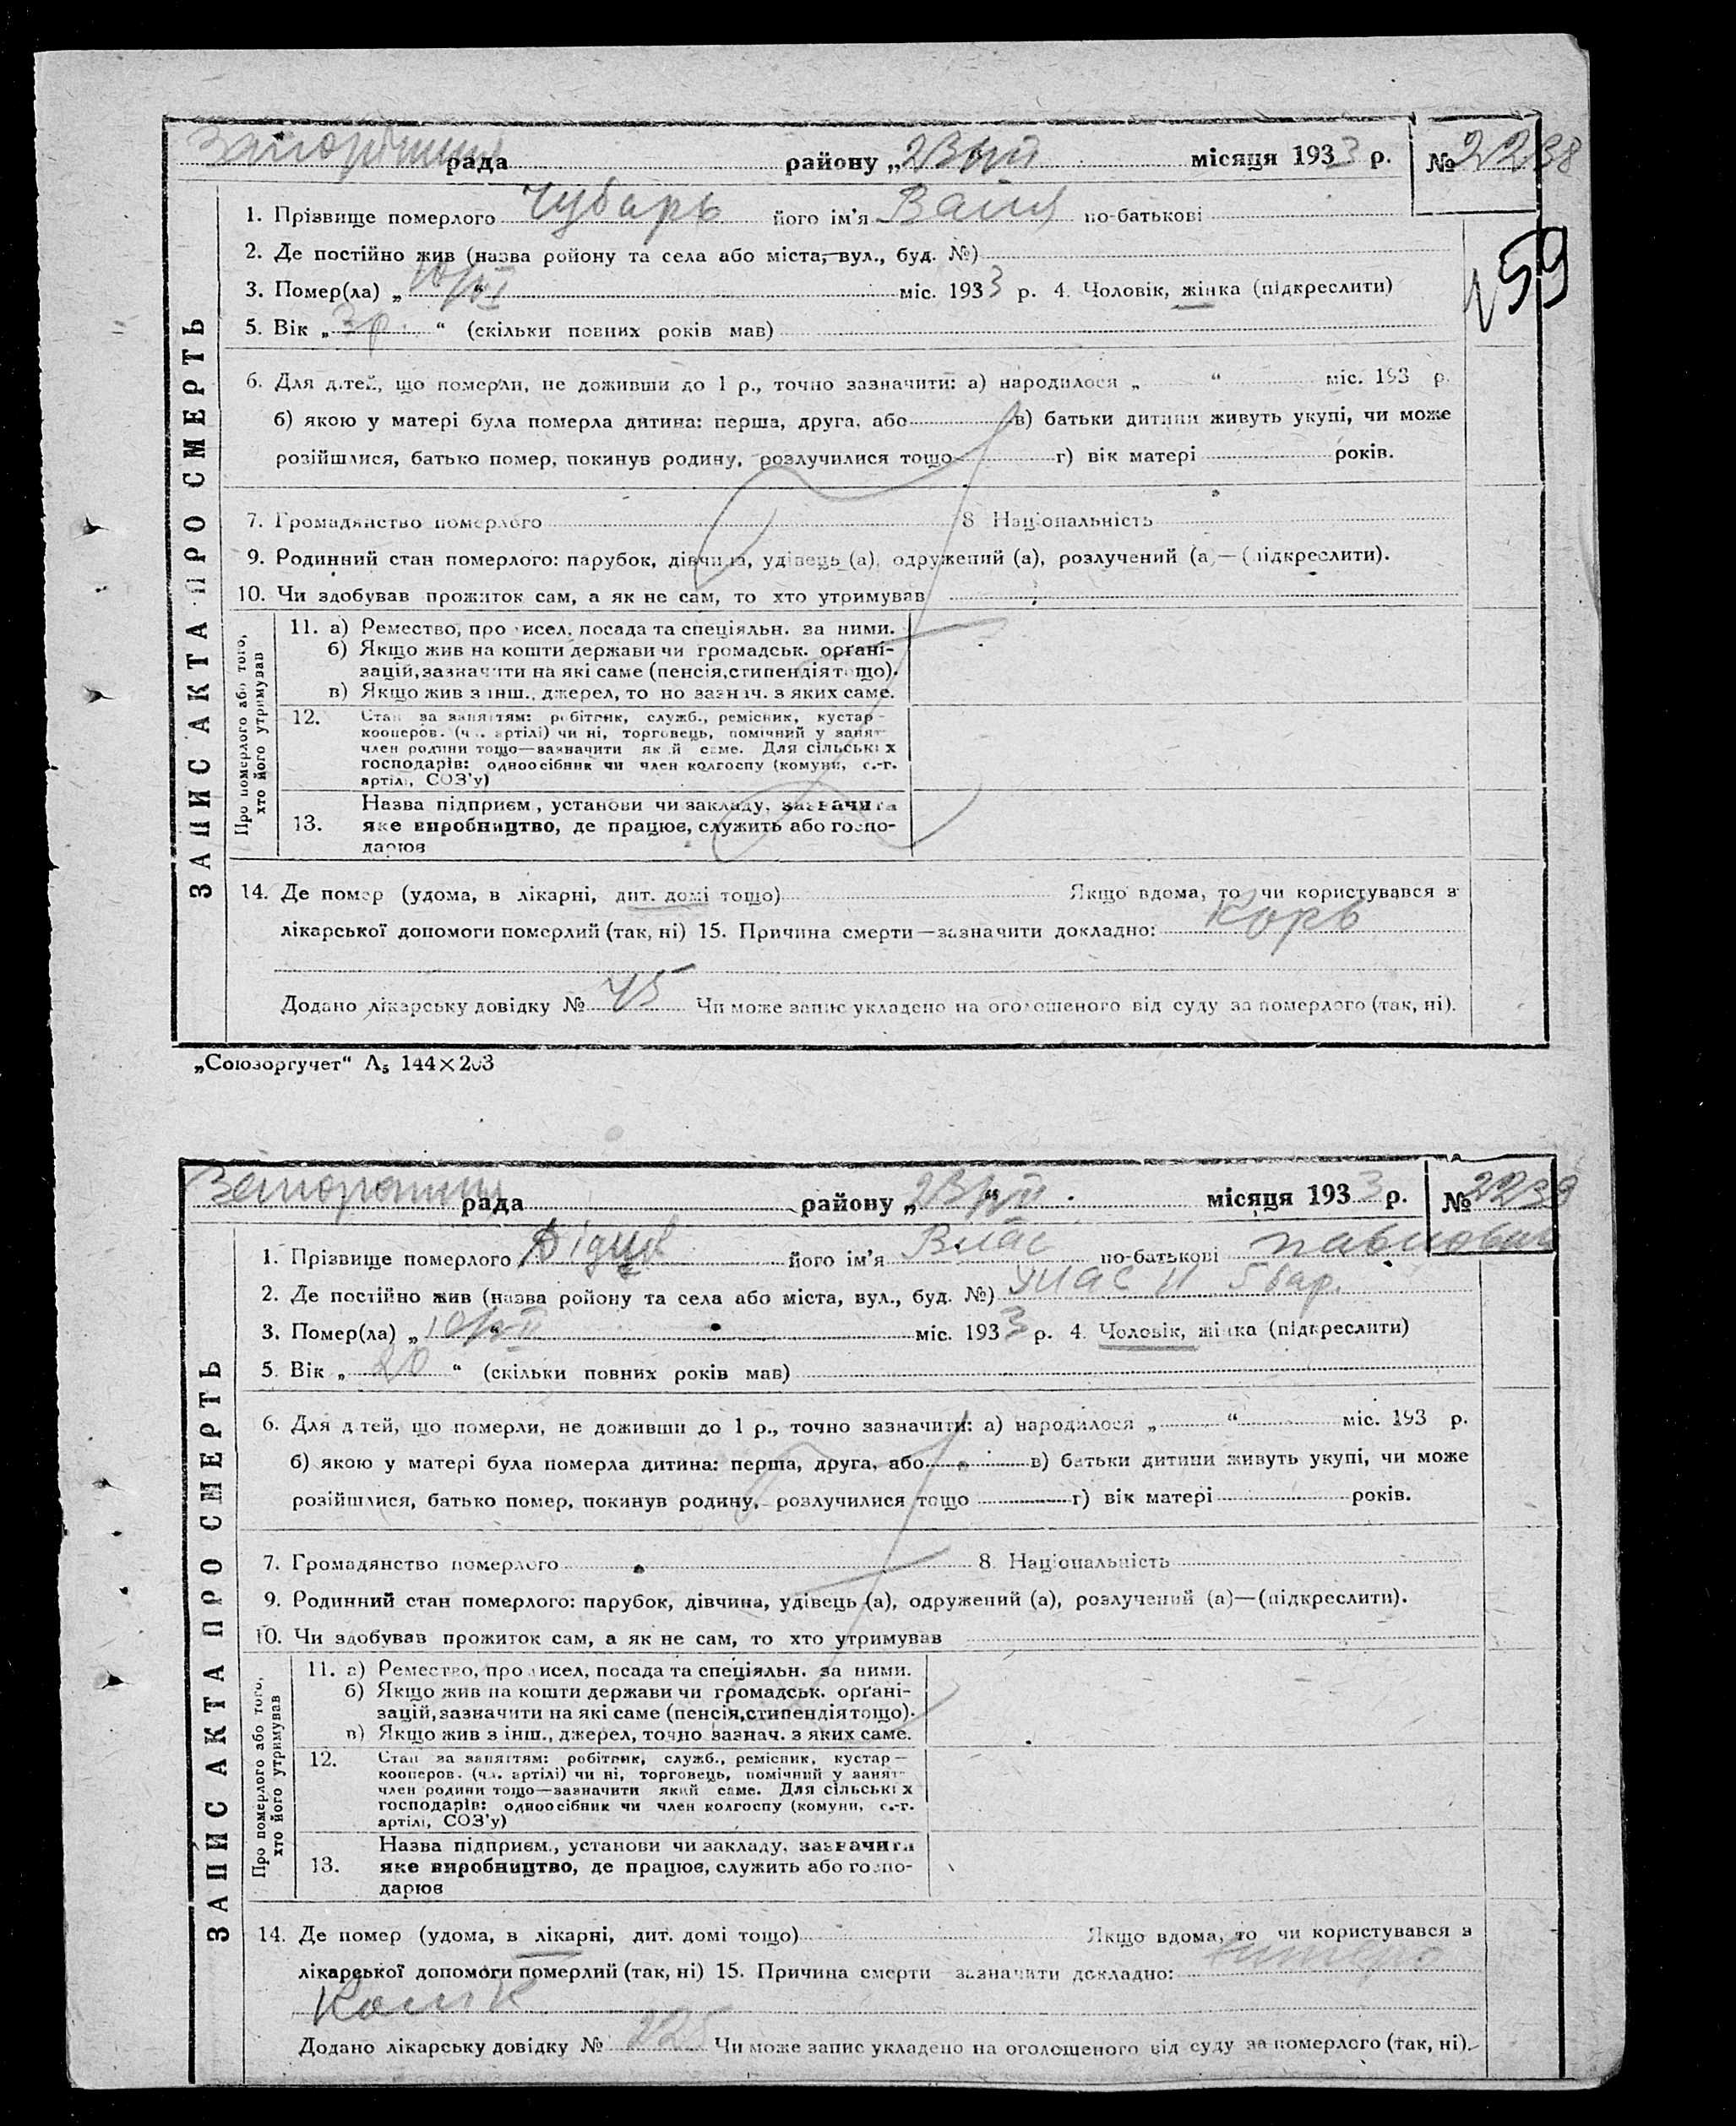 рада району „23 місяця 1933 р. № 2238
1. Прізвище померлого Чубарь його ім'я Ваня по-батькові
2. Де постійно жив (назва ройону та села або міста, вул., буд. №)
3. Помер(ла) „ міс. 1933 р. 4. Чоловік, жінка (підкреслити)
159
5. Вік „ 3 р. “ (скільки повних років мав)
6. Для дітей, що померли, не доживши до 1 р., точно зазначити: а) народилося „ “ міс. 193 р.
б) якою у матері була померла дитина: перша, друга, або в) батьки дитини живуть укупі, чи може
розійшлися, батько помер, покинув родину, розлучилися тощо г) вік матері років.
7. Громадянство померлого 8. Національність
9. Родинний стан померлого: парубок, дівчина, удівець (а), одружений (а), розлучений (а)—(підкреслити).
10. Чи здобував прожиток сам, а як не сам, то хто утримував
ЗАПИС АКТА ПРО СМЕРТЬ
Про померлого або того, хто його утримував
11. а) Ремество, про исел, посада та спеціяльн. за ними.
б) Якщо жив на кошти держави чи громадськ. орґані-
зацій, зазначити на які саме (пенсія, стипендія тощо).
в) Якщо жив з інш., джерел, то но зазнач. з яких саме.
12. Стан за заняттям: робітник, служб., ремісник, кустар—
кооперов. (чл. артілі) чи ні, торговець, помічний у занят
член родини тощо—зазначити який саме. Для сільських
господарів: одноосібник чи член колгоспу (комуни, с.-г.
артілі, СОЗ'у)
13. Назва підприєм., установи чи закладу, зазначити
яке виробництво, де працює, служить або госпо-
дарює
14. Де помер (удома, в лікарні, дит. домі тощо) Якщо вдома, то чи користувався з
лікарської допомоги померлий (так, ні) 15. Причина смерти—зазначити докладно: Корь
Додано лікарську довідку № 45 Чи може запис укладено на оголошеного від суду за померлого (так, ні).
„Союзоргучет“ А5 144×203
рада району „23 місяця 1933 р. № 2239
1. Прізвище померлого його ім'я Влас по-батькові Павлович
2. Де постійно жив (назва ройону та села або міста, вул., буд. №) 5 бар.
3. Помер(ла) „ міс. 1933 р. 4. Чоловік, жінка (підкреслити)
5. Вік „ 20 “ (скільки повних років мав)
6. Для дітей, що померли, не доживши до 1 р., точно зазначити: а) народилося „ “ міс. 193 р.
б) якою у матері була померла дитина: перша, друга, або в) батьки дитини живуть укупі, чи може
розійшлися, батько помер, покинув родину, розлучилися тощо г) вік матері років.
7. Громадянство померлого 8. Національність
9. Родинний стан померлого: парубок, дівчина, удівець (а), одружений (а), розлучений (а)—(підкреслити).
10. Чи здобував прожиток сам, а як не сам, то хто утримував
ЗАПИС АКТА ПРО СМЕРТЬ
Про померлого або того, хто його утримував
11. а) Ремество, про исел, посада та спеціяльн. за ними.
б) Якщо жив на кошти держави чи громадськ. орґані-
зацій, зазначити на які саме (пенсія, стипендія тощо).
в) Якщо жив з інш., джерел, точно зазнач. з яких саме.
12. Стан за заняттям: робітник, служб., ремісник, кустар—
кооперов. (чл. артілі) чи ні, торговець, помічний у занят
член родини тощо—зазначити який саме. Для сільських
господарів: одноосібник чи член колгоспу (комуни, с.-г.
артілі, СОЗ'у)
13. Назва підприєм., установи чи закладу, зазначити
яке виробництво, де працює, служить або госпо-
дарює
14. Де помер (удома, в лікарні, дит. домі тощо) Якщо вдома, то чи користувався з
лікарської допомоги померлий (так, ні) 15. Причина смерти зазначити докладно:
Додано лікарську довідку № 225 Чи може запис укладено на оголошеного від суду за померлого (так, ні).